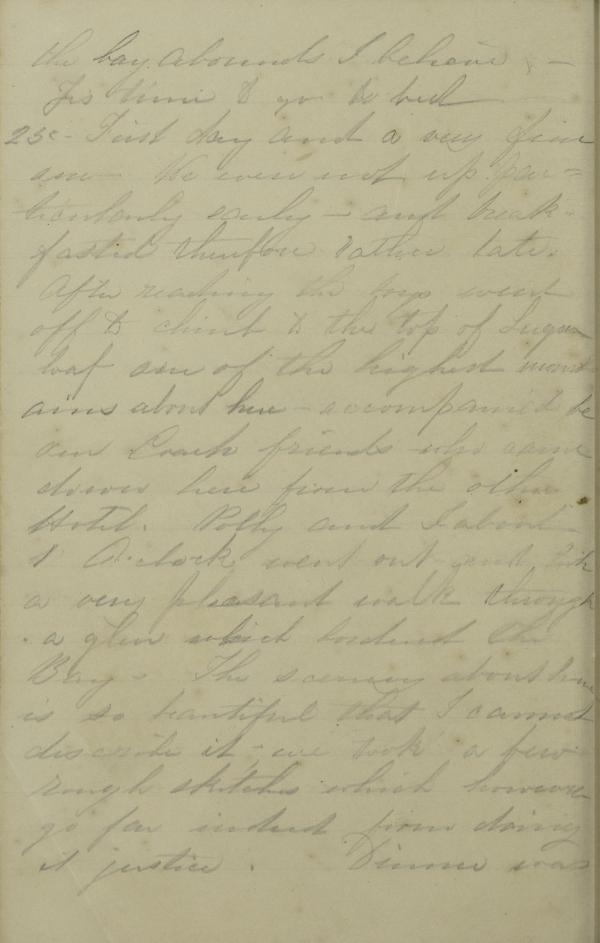 the bay abounds I believe —
Tis time to go to bed
23d - First day and a very fine
one — We were not up par=
ticularly early — and break-
fasted therefore rather late.
After reading the boys went
off to climb to the top of Sugar
loaf one of the highest mount
ains about here — accompanied be
our Coach friends who came
down here from the other
Hotel. Polly and I about
1 O.clock went out and took
a very pleasant walk through
a glen which bordered the
Bay - The scenery about here
is so beautiful that I cannot
describe it - we took a few
rough sketches which however
go far indeed from doing
it justice. Dinner was